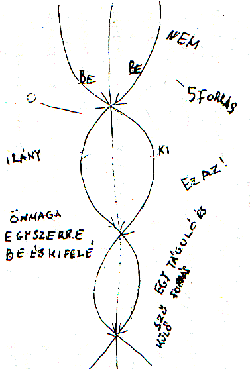 NEM
BE
BE
5 FORRÁS
O
IRÁNY
KI
EZ AZ!
ÖNMAGA
EGYSZERRE
BE ÉS KIFELÉ
EGY TÁGULÓ ÉS
FORRÁS